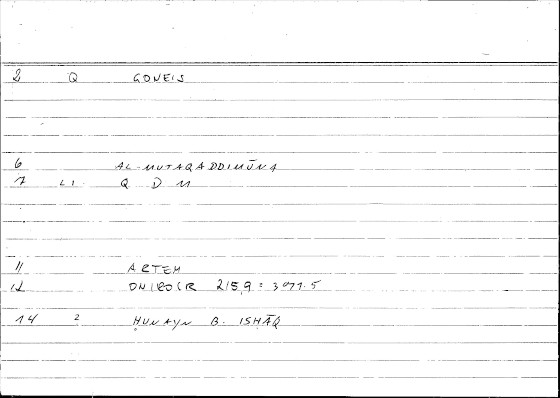 2 Q GONEIS
6 AL-MUTAQADDIMŪNA
7 LI Q D M
11 ARTEM
12 ONIROCR 215,9 = 3 5
14 2 ḤUNAYN B. ISḤĀQ